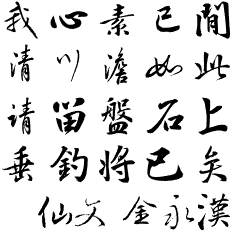 我心素已閒
清川澹如此
請留盤石上
垂釣將已矣
仙文 金永漢